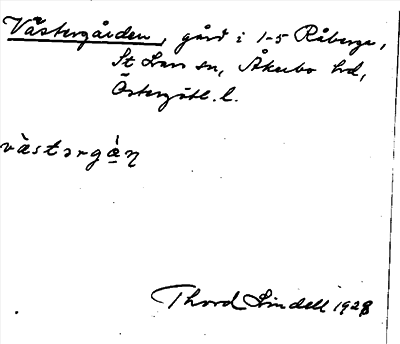 Västergården, gård i 1-5 Råberga,
St Lars sn, Åkerbo hd,
Östergötl. l.
västərgå̀ṇ
Thord Lindell 1928